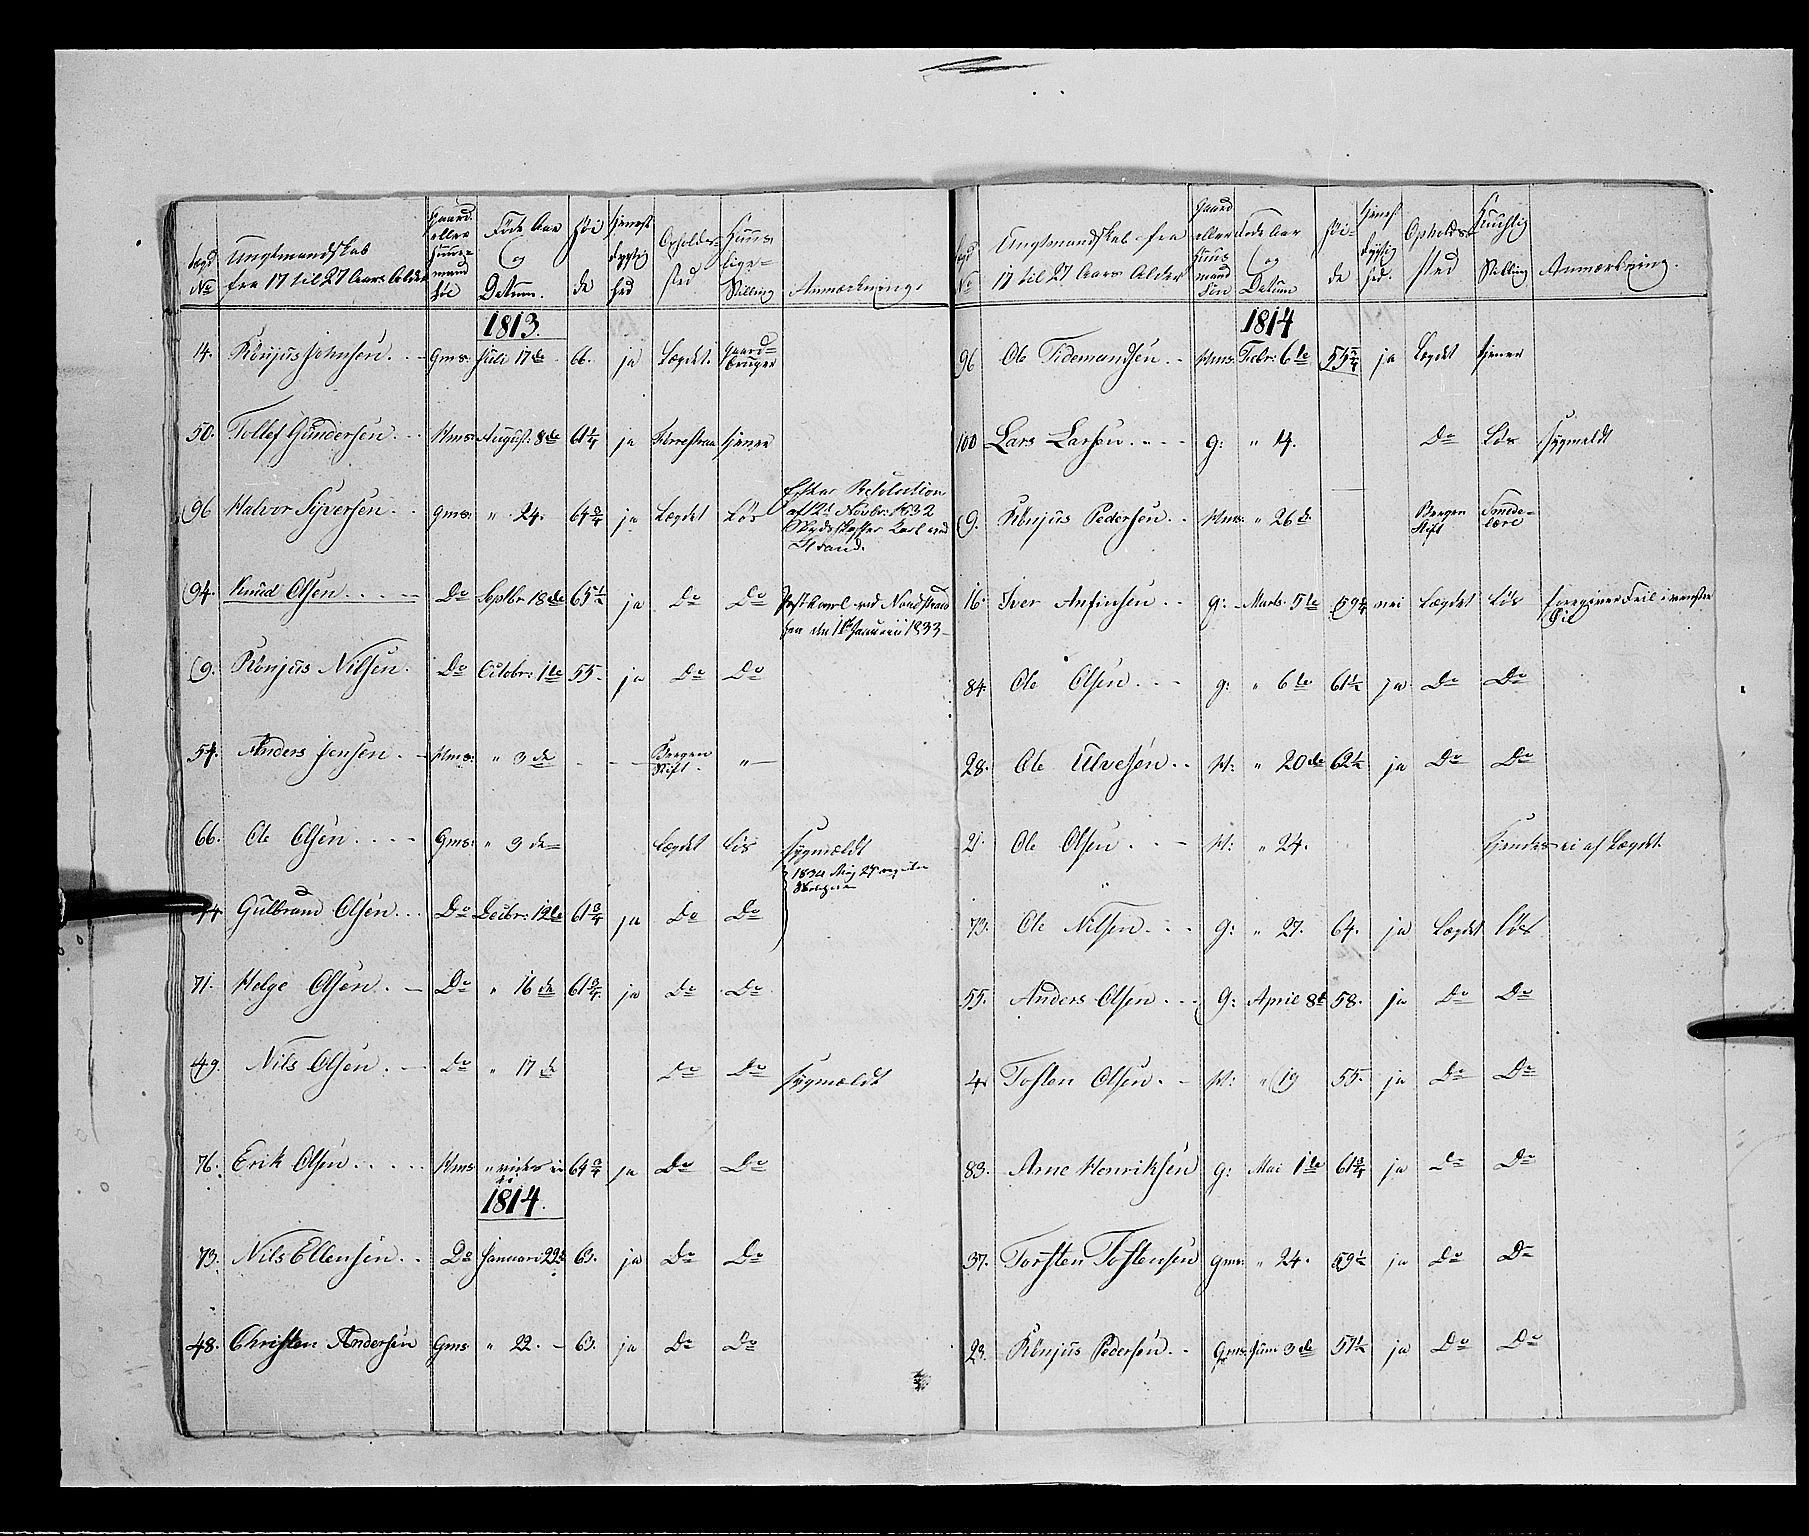 Lægd No
Ungtmandskab fra 17 til 27 Aars Alder
Gaard eller Huusmand Søn
Föde Aar og Datum.
Höide
tjenestdygtighed
Opholdssted
Huuslige Stilling
Anmærkning,
1813.
14. Rönjus Johnsen. Gms. Juli 17de 66. ja Lægdet. Gaardbruger
50. Tollef Gundersen. Hms. August. 8de 61 1/4 ja tjener
96 Halvor Syversen Gms. " 24. 64 3/4 ja Lægdet Løs Efter Resolution af 12 Novbr. 1832 Karl ved Strand.
94. Knud Olsen Do Septbr 18de 65 1/2 ja Do Do Postkarl ved Januarii 1833
9. Rönjus Nilsen. Do Octobr: 1te 55. ja Do Do
54. Anders Jensen Hms. " 3de Bergen Stift "
66. Ole Olsen Gms. " 9de Lægdet Løs sygmældt
74 Gulbrand Olsen Do Decbr: 12te 61 3/4 ja Do Do
71. Helge Olsen. Do " 16de 61 3/4 ja Do Do
49. Nils Olsen. Do " 17de Do Do sygmældt
76. Erik Olsen Hms 64 3/4 ja Do Do
1814.
73. Nils Ellensen Do Januari 22de 63. ja Do Do
48. Christen Andersen Gms. " 22. 63. ja Do Do
Lægd No
Ungtmandskab fra 17 til 27 Aars Alder
Gaard eller Huusmand Søn
Föde Aar og Datum
Höide
tjenestdygtighed.
Opholdssted
Huuslig Stilling
Anmærkning.
1814
96 Ole Tidemandsen Hms. Febr: 6te 55 3/4 ja Lægdet tjener
100 Lars Larsen g: " 14. Do Løs sygmeldt
9. Rönjus Pedersen Hms. " 26de Bergen Stift Smedelære
16. Iver Anfinsen g: Marts 5te 59 3/4 nei Lægdet Løs foregiver Feil i venstre
84. Ole Olsen g: " 6te 61 1/2 ja Do Do
28. Ole Ulvesen H: " 20de 62 1/2 ja Do Do
21. Ole Olsen H: " 24. kjendes ei af Lægdet.
73. Ole Nilsen g: " 27. 64. ja Lægdet Løs
55. Anders Olsen g: April 8t 58. ja Do Do
4. Tosten Olsen H: " 19 55. ja Do Do
83. Arne Henriksen g: Mai 1te 61 3/4 ja Do Do
37. Torsten Tostensen gms. " 24. 59 1/2 ja Do Do
23. Rönjus Pedersen gms. Juni 3de 57 1/2 ja Do Do